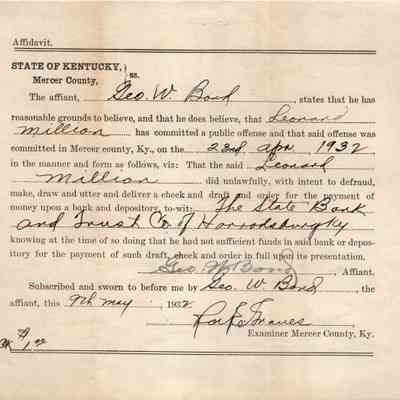 Affidavit.
STATE OF KENTUCKY, } ss.
Mercer County,
The affiant, Geo. W. Bond, states that he has
reasonable grounds to believe, and that he does believe, that Leonard
Million has committed a public offense and that said offense was
committed in Mercer county, Ky., on the 23rd Apr. 1932
in the manner and form as follows, viz: That the said Leonard
Million did unlawfully, with intent to defraud,
make, draw and utter and deliver a check and draft and order for the payment of
money upon a bank and depository, to-wit: The State Bank
and Trust Co. of Harrodsburg Ky
knowing at the time of so doing that he had not sufficient funds in said bank or depos-
itory for the payment of such draft, check and order in full upon its presentation.
Geo. W. Bond, Affiant.
Subscribed and sworn to before me by Geo. W Bond, the
affiant, this 9th May, 1932.
Graves
Examiner Mercer County, Ky.